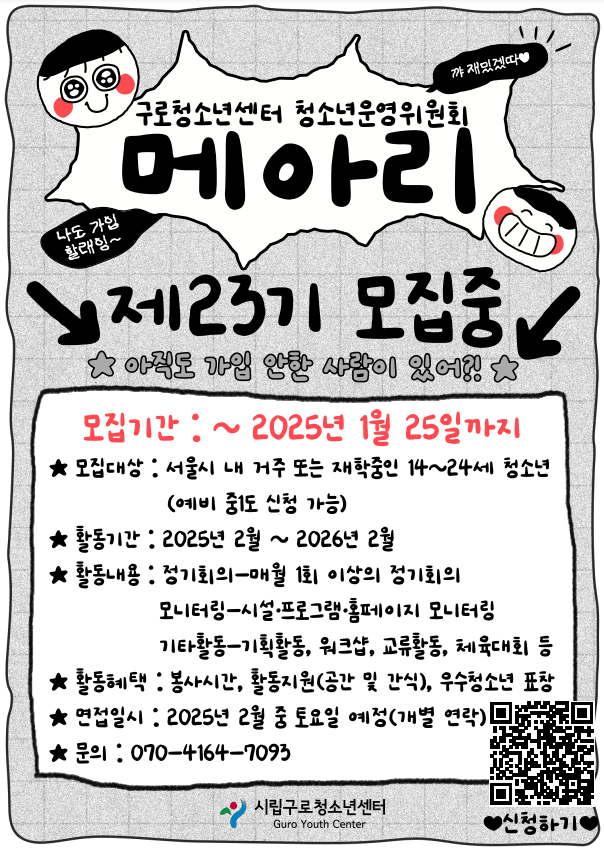 꺄 재밌겠따♥
구로청소년센터 청소년운영위원회
메아리
나도 가입
할래잉~
제23기 모집중
★ 아직도 가입 안한 사람이 있어?! ★
모집기간 : ~ 2025년 1월 25일까지
★ 모집대상 : 서울시 내 거주 또는 재학중인 14~24세 청소년
(예비 중1도 신청 가능)
★ 활동기간 : 2025년 2월 ~ 2026년 2월
★ 활동내용 : 정기회의-매월 1회 이상의 정기회의
모니터링-시설·프로그램·홈페이지 모니터링
기타활동-기획활동, 워크샵, 교류활동, 체육대회 등
★ 활동혜택 : 봉사시간, 활동지원(공간 및 간식), 우수청소년 표창
★ 면접일시 : 2025년 2월 중 토요일 예정(개별 연락)
★ 문의 : 070-4164-7093
시립구로청소년센터
Guro Youth Center
♥신청하기♥